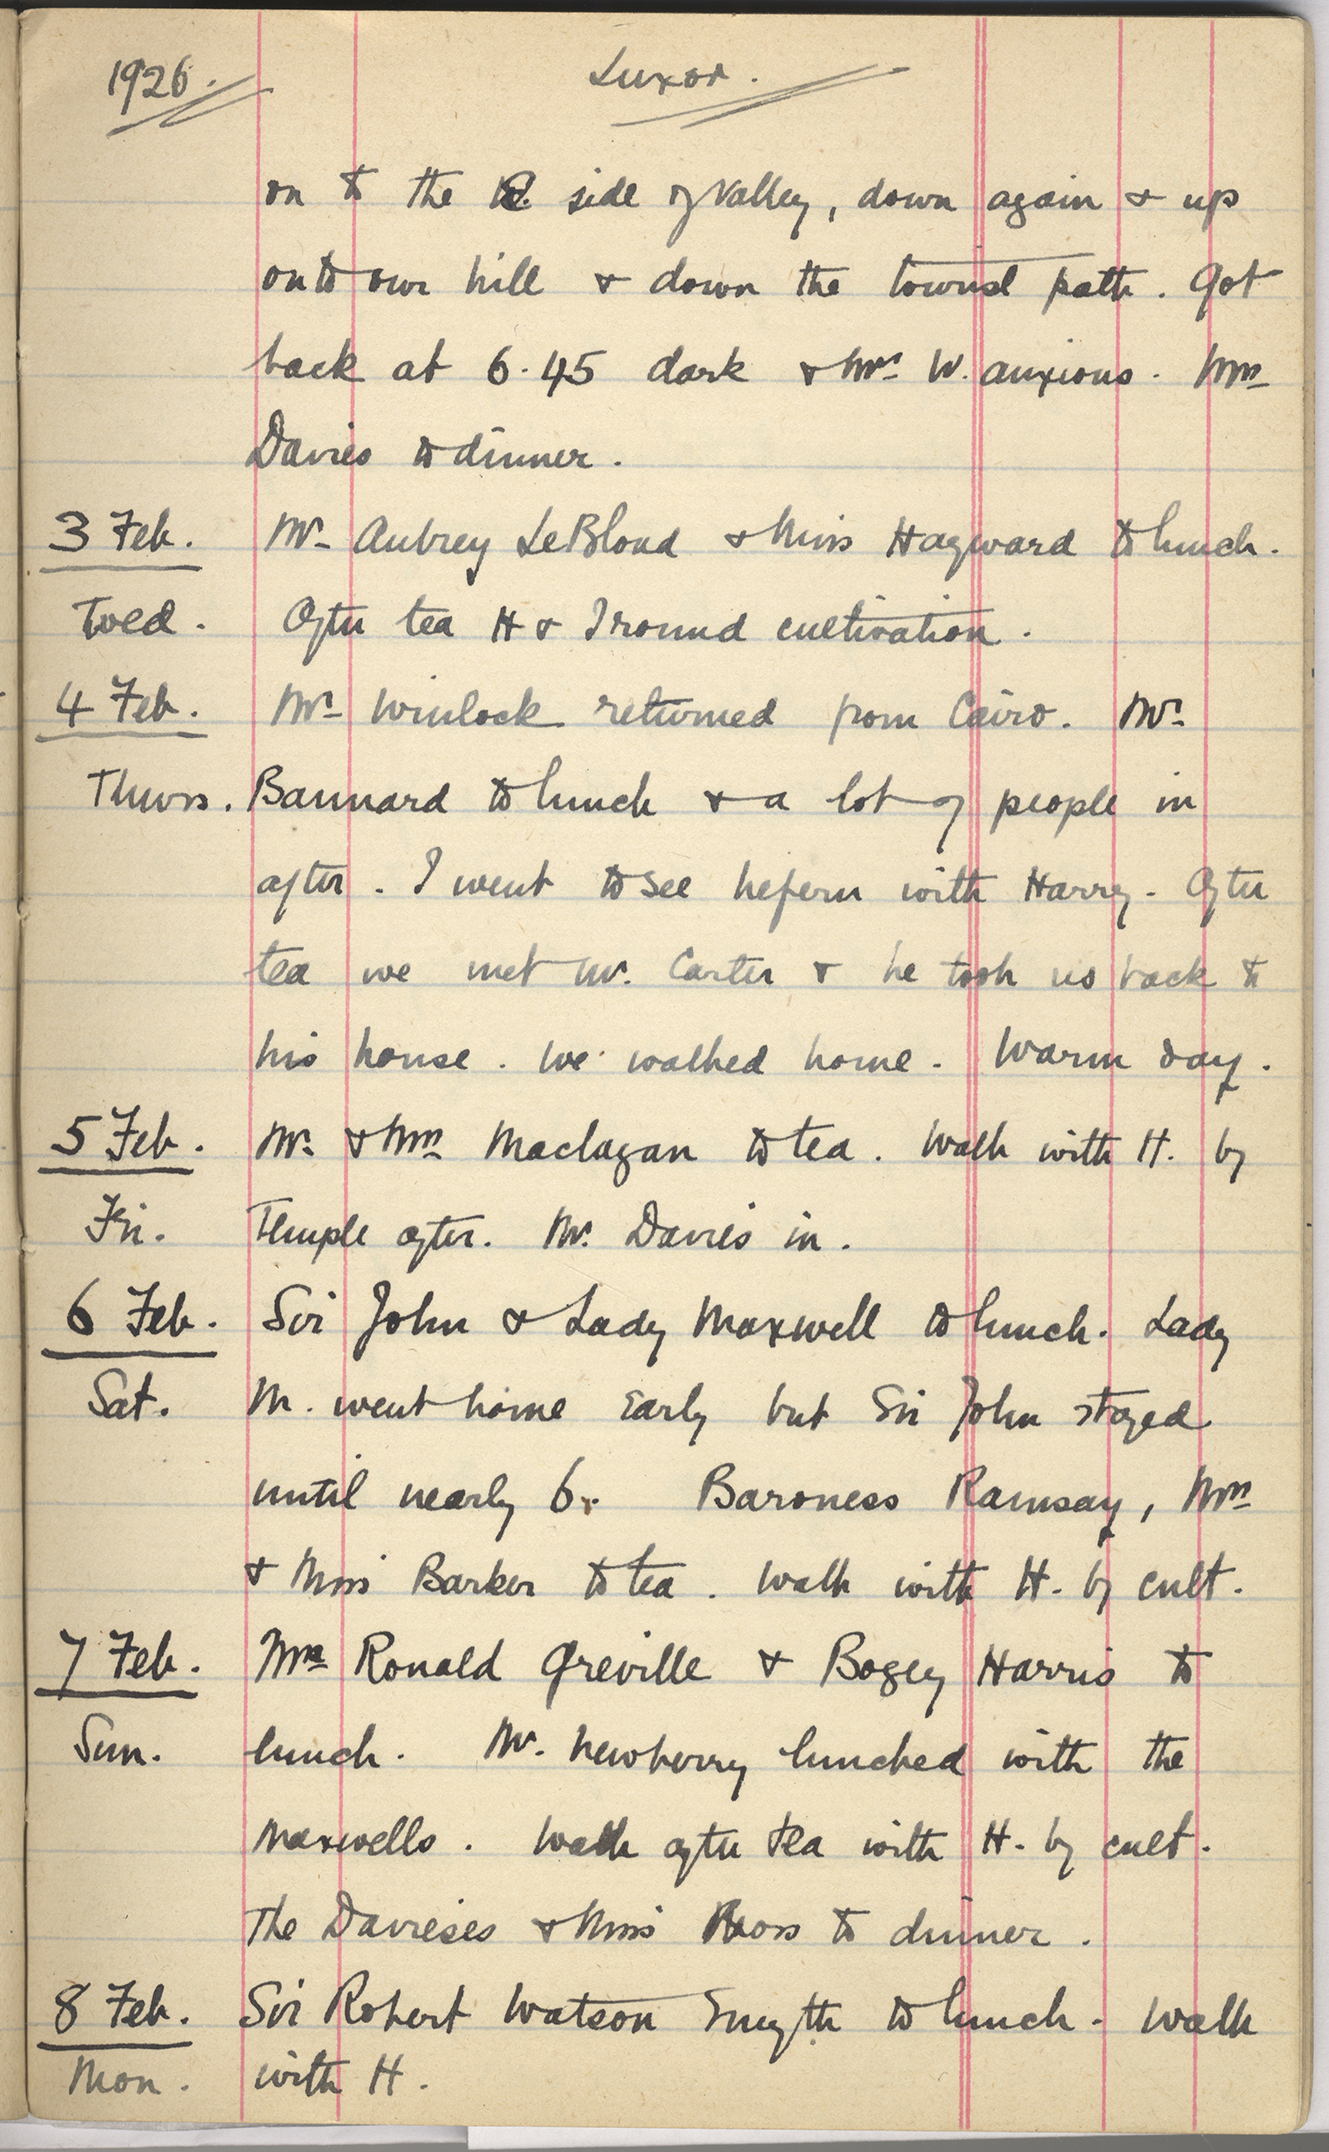 1926. Luxor.
on to the E. side of Valley, down again & up
onto our hill & down the tourist path. Got
back at 6.45 dark & Mrs W. anxious. Mrs
Davies to dinner.
3 Feb. Mr Aubrey LeBlond & Miss Hayward to lunch.
Wed. After tea H & I round cultivation.
4 Feb. Mr Winlock returned from Cairo. Mr
Thurs. Bannard to lunch & a lot of people in
after. I went to see Neferu with Harry. After
tea we met Mr. Carter & he took us back to
his house. We walked home. Warm day.
5 Feb. Mr. & Mrs Maclagan to tea. Walk with H. by
Fri. Temple after. Mr. Davies in.
6 Feb. Sir John & Lady Maxwell to lunch. Lady
Sat. M. went home early but Sir John stayed
until nearly 6. Baroness Ramsay, Mrs
& Miss Barker to tea. Walk with H. by cult.
7 Feb. Mrs Ronald Greville & Bogey Harris to
Sun. lunch. Mr. Newberry lunched with the
Maxwells. Walk after tea with H. by cult.
The Davieses & Miss Ross to dinner.
8 Feb. Sir Robert Watson Smyth to lunch. Walk
Mon. with H.